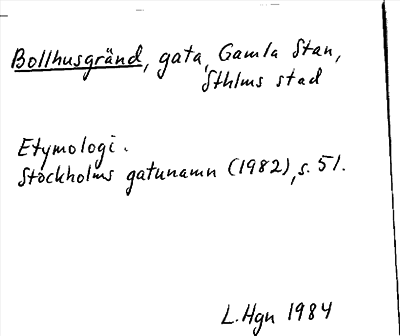 Bollhusgränd, gata, Gamla Stan,
Sthlms stad
Etymologi.
Stockholms gatunamn (1982), s. 51.
L. Hgn 1984